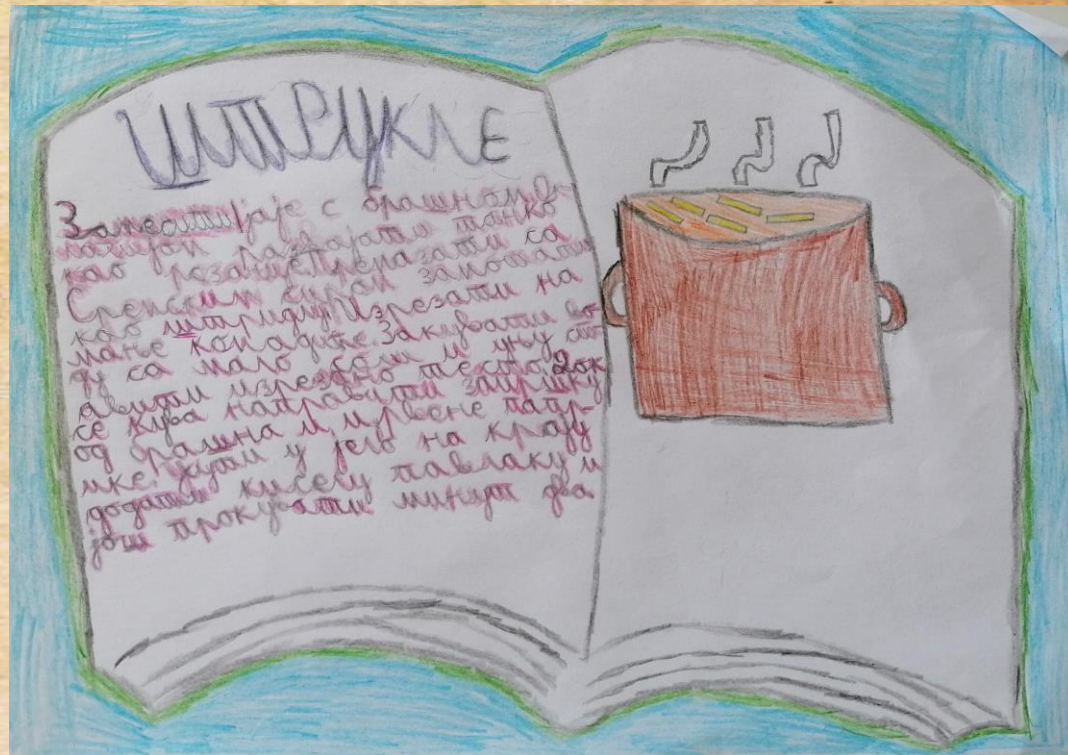 ШТРУКЛЕ
Замесити јаје с брашном
развијати танко
као резанце Премазати са
Сремским сиром замотати
као штрудлу Изрезати на
мање комадиће. Закувати во-
ду са мало соли и у њу ст-
авити изрезано тесто. Док
се кува направити запршку
од брашна и црвене папр-
ике. сути у јело на крају
додати киселу павлаку и
још прокувати минут два